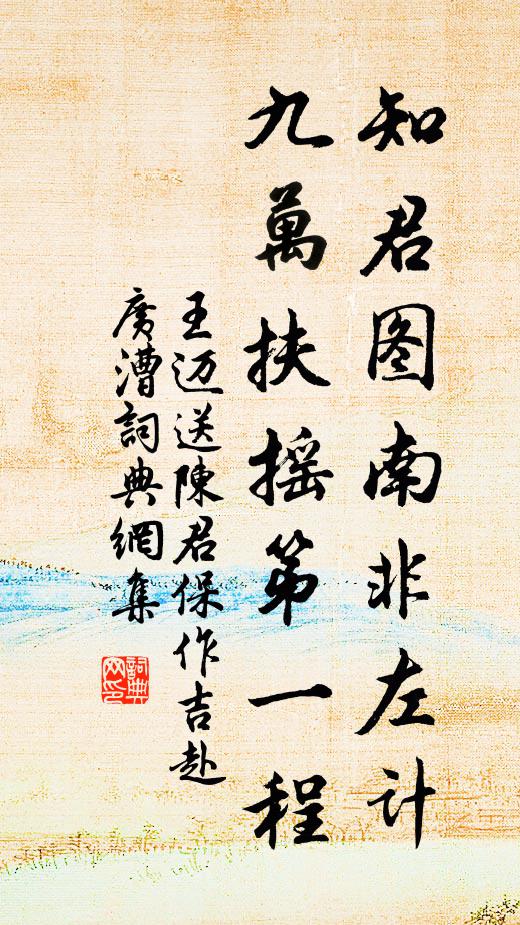 知君图南非左计
九萬扶摇第一程
王迈送陳君保作吉赴
廣漕詞典網集
詞典网印